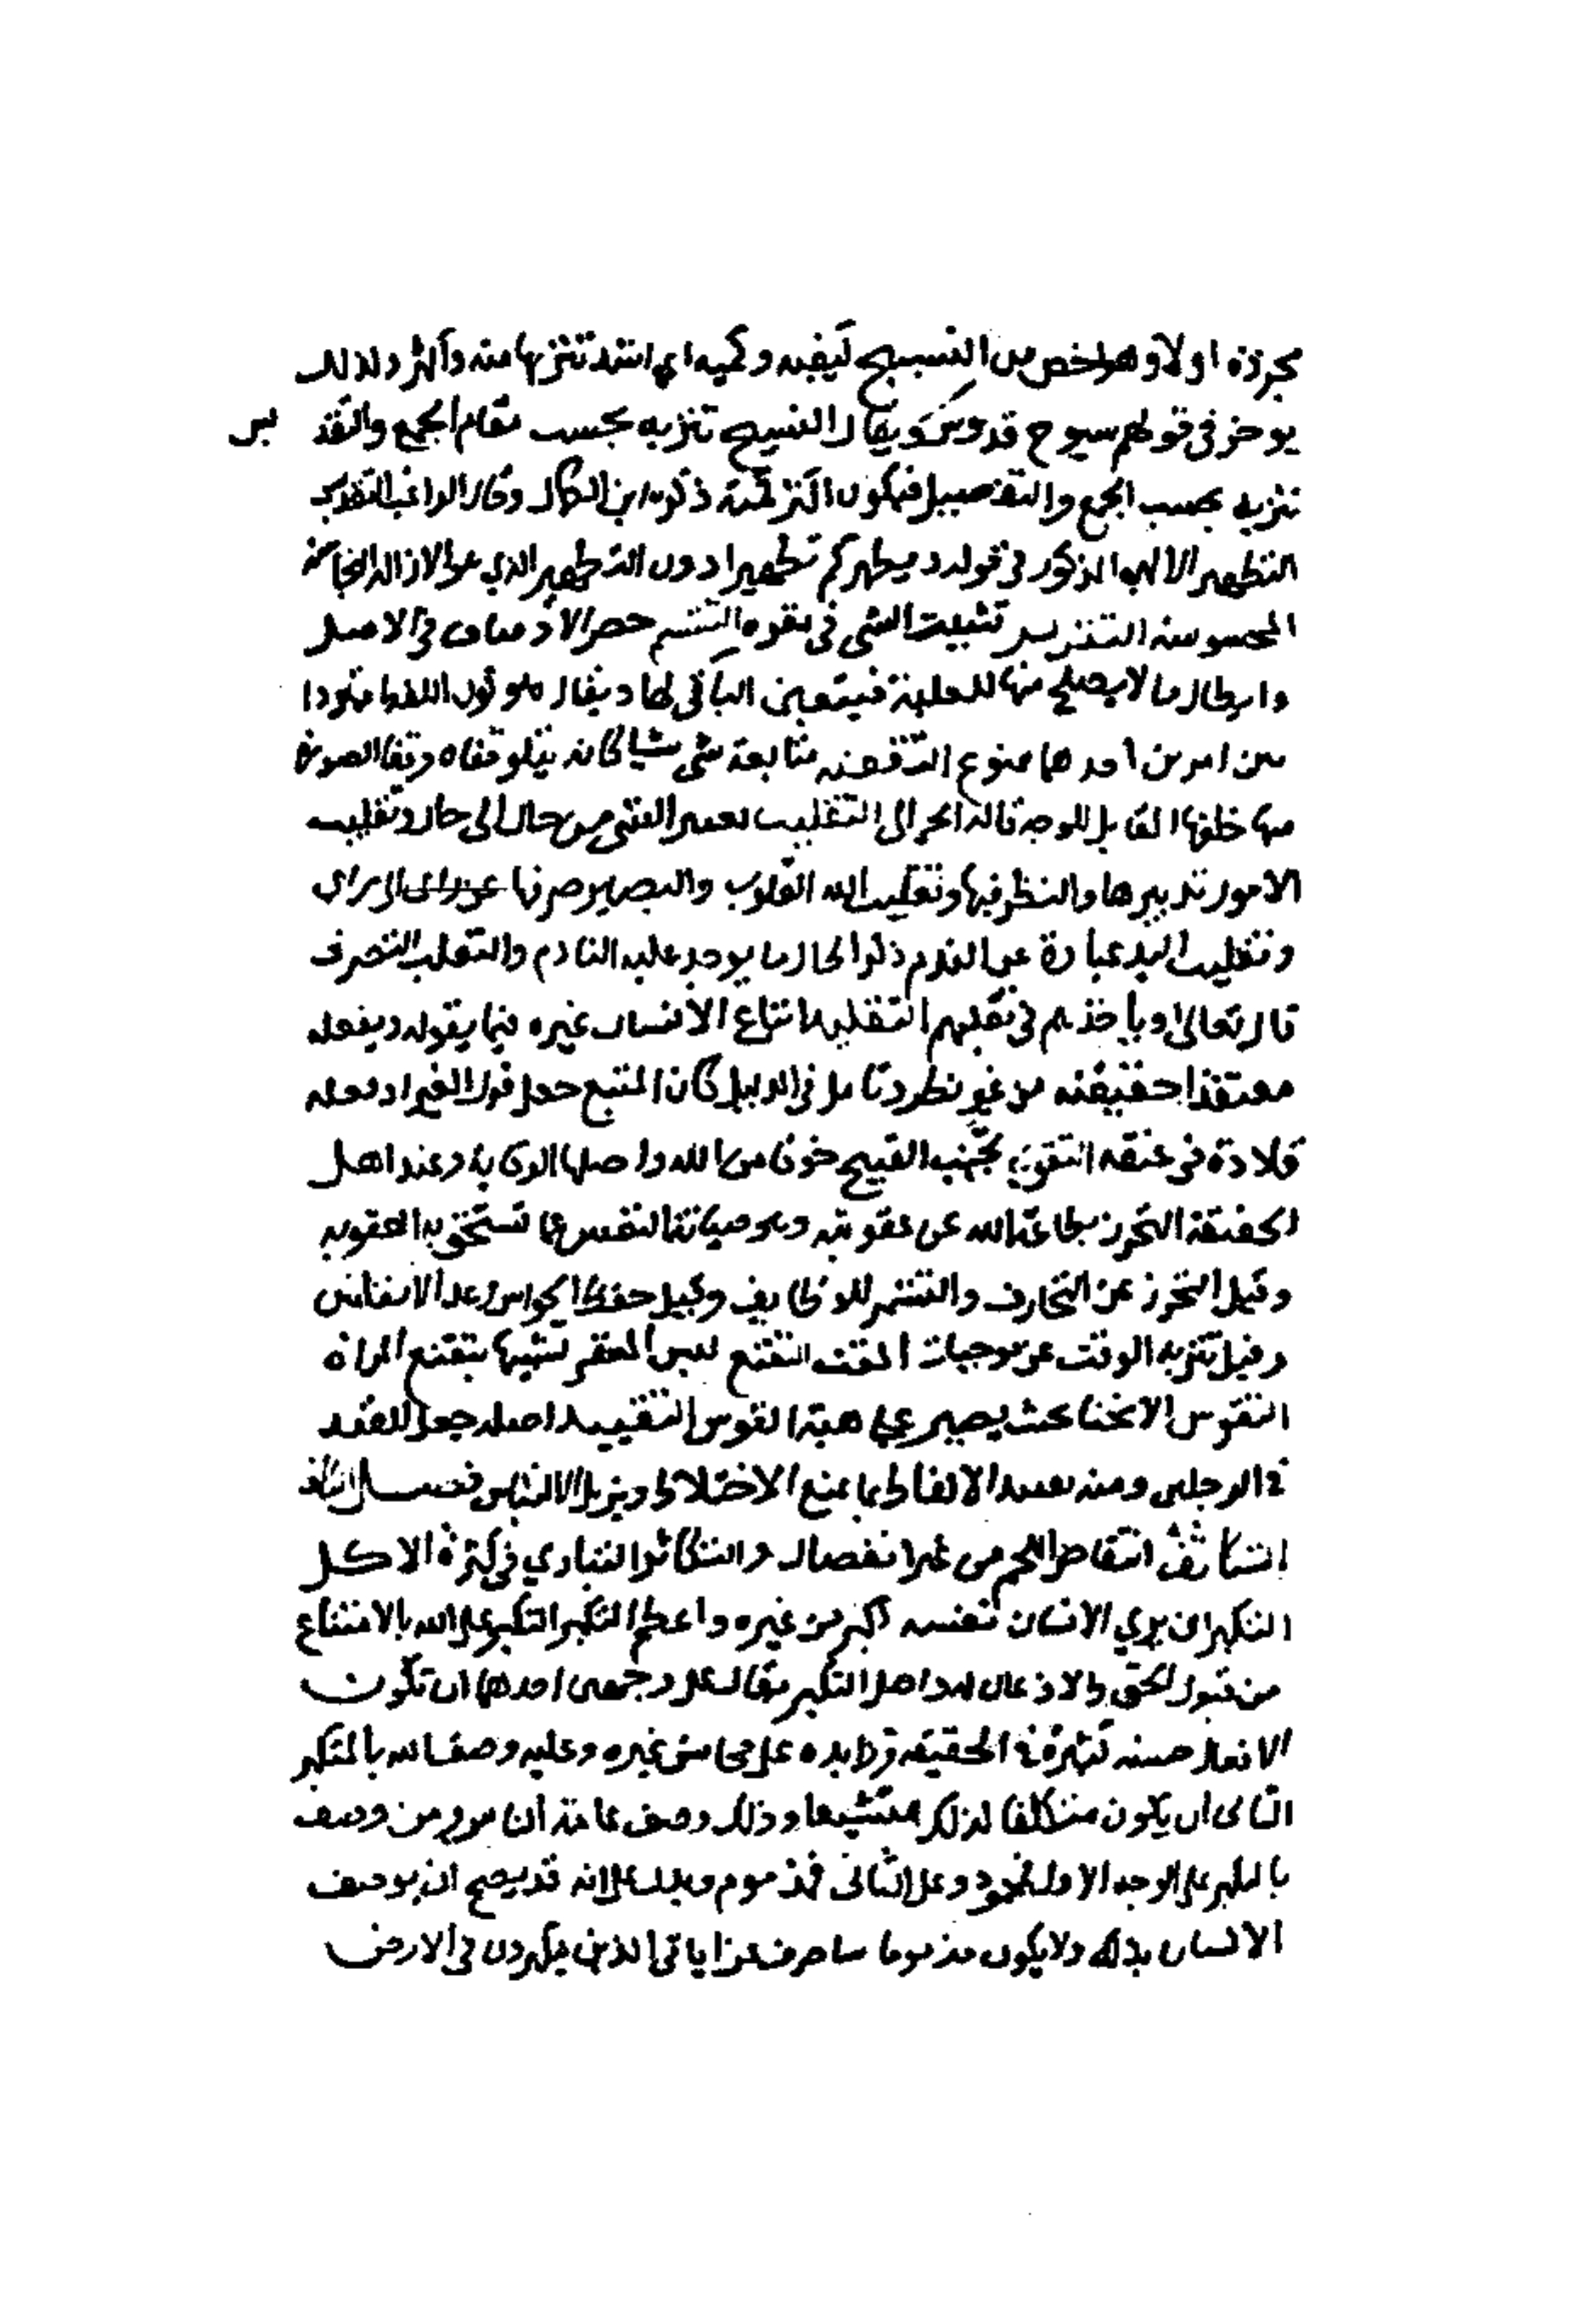 مجردة اولا وهو اخص من التسبيح كيفيه وكميه اي اشد تنزيها منه واكثر ولذلك
يوخر في قولهم سبوح قدوس ويقال التسبيح تنزيه بحسب مقام الجمع والتقد يس
تنزيه بحسب الجمع والتفصيل فيكون اكثر كمية ذكره ابن الكمال وقال الراغب التقديس
التطهير الالهي المذكور في قوله ويطهركم تطهيرا دون التطهير الذي هو الازالة النجاسة
المحسوسة التقرير تثبيت الشي في مقره التقسيم حصر الاوصاف في الاصل
وابطال ما لا يصلح منها للعلية فيتعين الباقي لها ويقال هو كون اللفظ مترددا
بين امرين احدهما ممنوع التقفيه متابعة شي شيا كانه يتلو قفاه وقفا الصورة
منها خلفها المقابل للوجه قاله الحرالي التقليب تصيير الشي من حال الى حال وتقليب
الامور تدبيرها والنظر فيها وتقليب الله القلوب والبصير صرفها عن راى الى راى
وتقليب اليد عبارة عن الندم ذكرا لحال ما يوجد عليه النادم والتقلب التصرف
قال تعالى او ياخذهم في تقلبهم التقليد اتباع الانسان غيره فيما يقوله ويفعله
معتقدا حقيقته من غير نظر وتامل في الدليل كان المتبع جعل قول الغير او فعله
قلادة في عنقه التقوى تجنب القبيح خوفا من الله واصلها الوقاية وعند اهل
الحقيقة التحرز بطاعة الله عن عقوبته وهو صيانة النفس عما تستحق به العقوبه
وقيل التحرز عن المخاوف والتشمر للوظايف وقيل حفظ الحواس وعد الانفاس
وقيل تنزيه الوقت عن موجبات المقت التقنع لبس المغفر تشبيها بتقنع المراة
التقوس الانحنا بحيث يصير على هيئة القوس التقييد اصله جعل القيد
في الرجلين ومنه تقييد الالفاظ بما يمنع الاختلاط ويزيل الالتباس فصل الكاف
التكاثف انتقاص الحجم من غير انفصال والتكاثر التباري في كثرة الاكل
التكبر ان يري الانسان نفسه اكبر من غيره واعظم التكبر التكبر على الله بالامتناع
من قبول الحق والاذعان له واصل التكبر يقال على وجهين احدهما ان تكون
الافعال حسنه كثيرة في الحقيقه وزايده على محاسن غيره وعليه وصف الله بالمتكبر
الثاني ان يكون متكلفا لذلك متشبعا وذلك وصف عامة الناس ومن وصف
بالكبر على الوجه الاول محمود وعلى الثاني فمذموم ويدل على انه قد يصح ان يوصف
الانسان بذلك ولا يكون مذموما ساصرف عن اياتي الذين يتكبرون في الارض